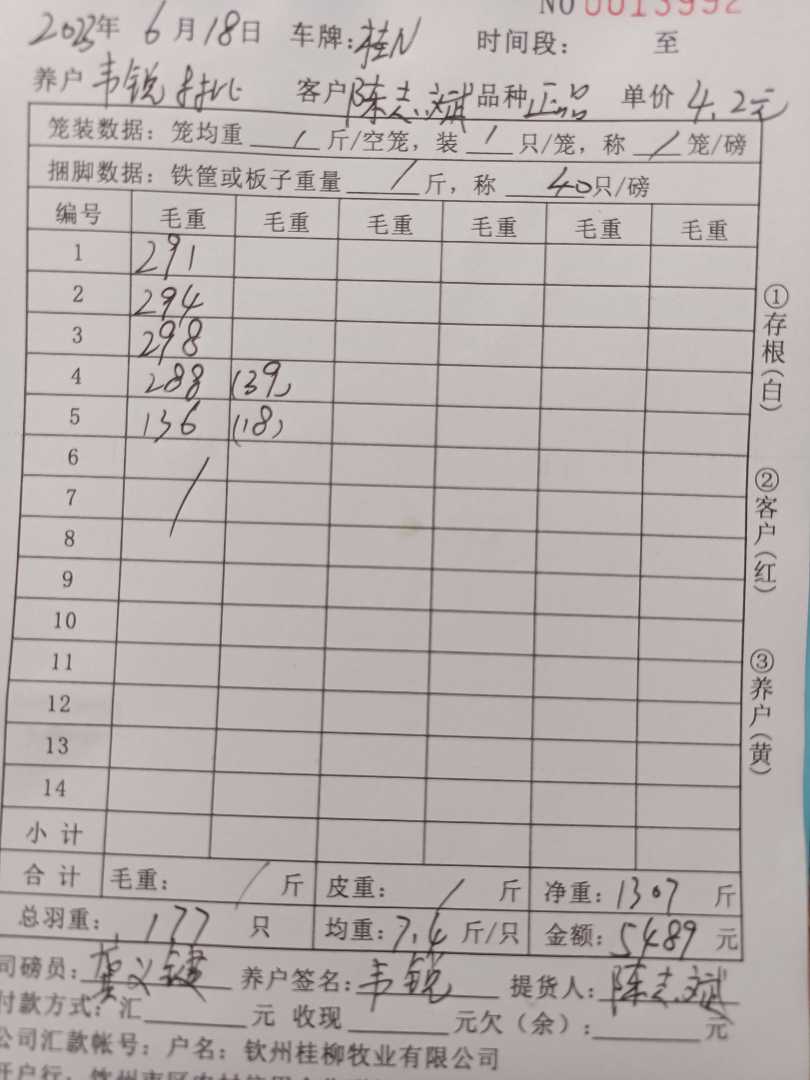 NO 0013992
2023年 6月18日 车牌:桂N 时间段: 至
养户 韦锐 客户 陈志斌 品种 正品 单价 4.2元
笼装数据: 笼均重 / 斤/空笼, 装 / 只/笼, 称 / 笼/磅
捆脚数据: 铁筐或板子重量 / 斤, 称 40只/磅
编号 毛重 毛重 毛重 毛重 毛重 毛重
1 291
2 294
3 298
4 288 (39)
5 136 (18)
6 /
7
8
9
10
11
12
13
14
小计
合计 毛重: / 斤 皮重: / 斤 净重: 1307 斤
总羽重: 177 只 均重: 7.4 斤/只 金额: 5489 元
司磅员: 养户签名: 韦锐 提货人: 陈志斌
付款方式: 汇 元 收现 元欠(余): 元
公司汇款帐号: 户名: 钦州桂柳牧业有限公司
①存根(白)
②客户(红)
③养户(黄)